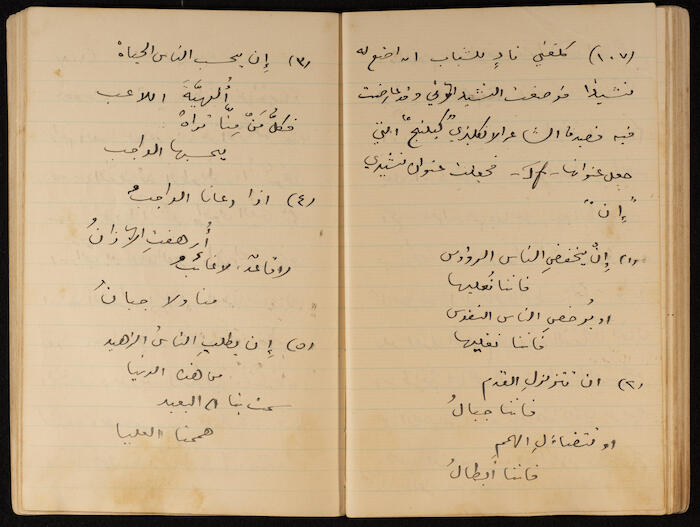 (١٠٧) كلفني نادٍ للشباب ان اضع له
نشيدًا فوضعت النشيد الآتي وقد عارضت
فيه قصيدة الشاعر الانكليزي "كبلنج" التي
جعل عنوانها - If - فجعلت عنوان نشيدي
"إن"
(١) إنْ يخفضِ الناس الرؤوس
فاننا نُعليها
او يُرخصِ الناس النفوس
فاننا نغليها
(٢) ان تتزلزلِ القدم
فاننا جبالُ
او تتضاءلِ الهمم
فاننا أبطالُ
(٣) إن يحسب الناس الحياةْ
أُلهيَّةَ اللاعب
فكلُّ مَنْ مِنَّا تراهْ
يحسبها الواجب
(٤) اذا دعانا الواجبُ
أُرهفت الآذانُ
لا قاعدٌ، لا غائبُ
منا ولا جبانُ
(٥) إن يطلبِ الناسُ الزهيد
من هذه الدنيا
سمت بنا الى البعيد
هممنا العليا